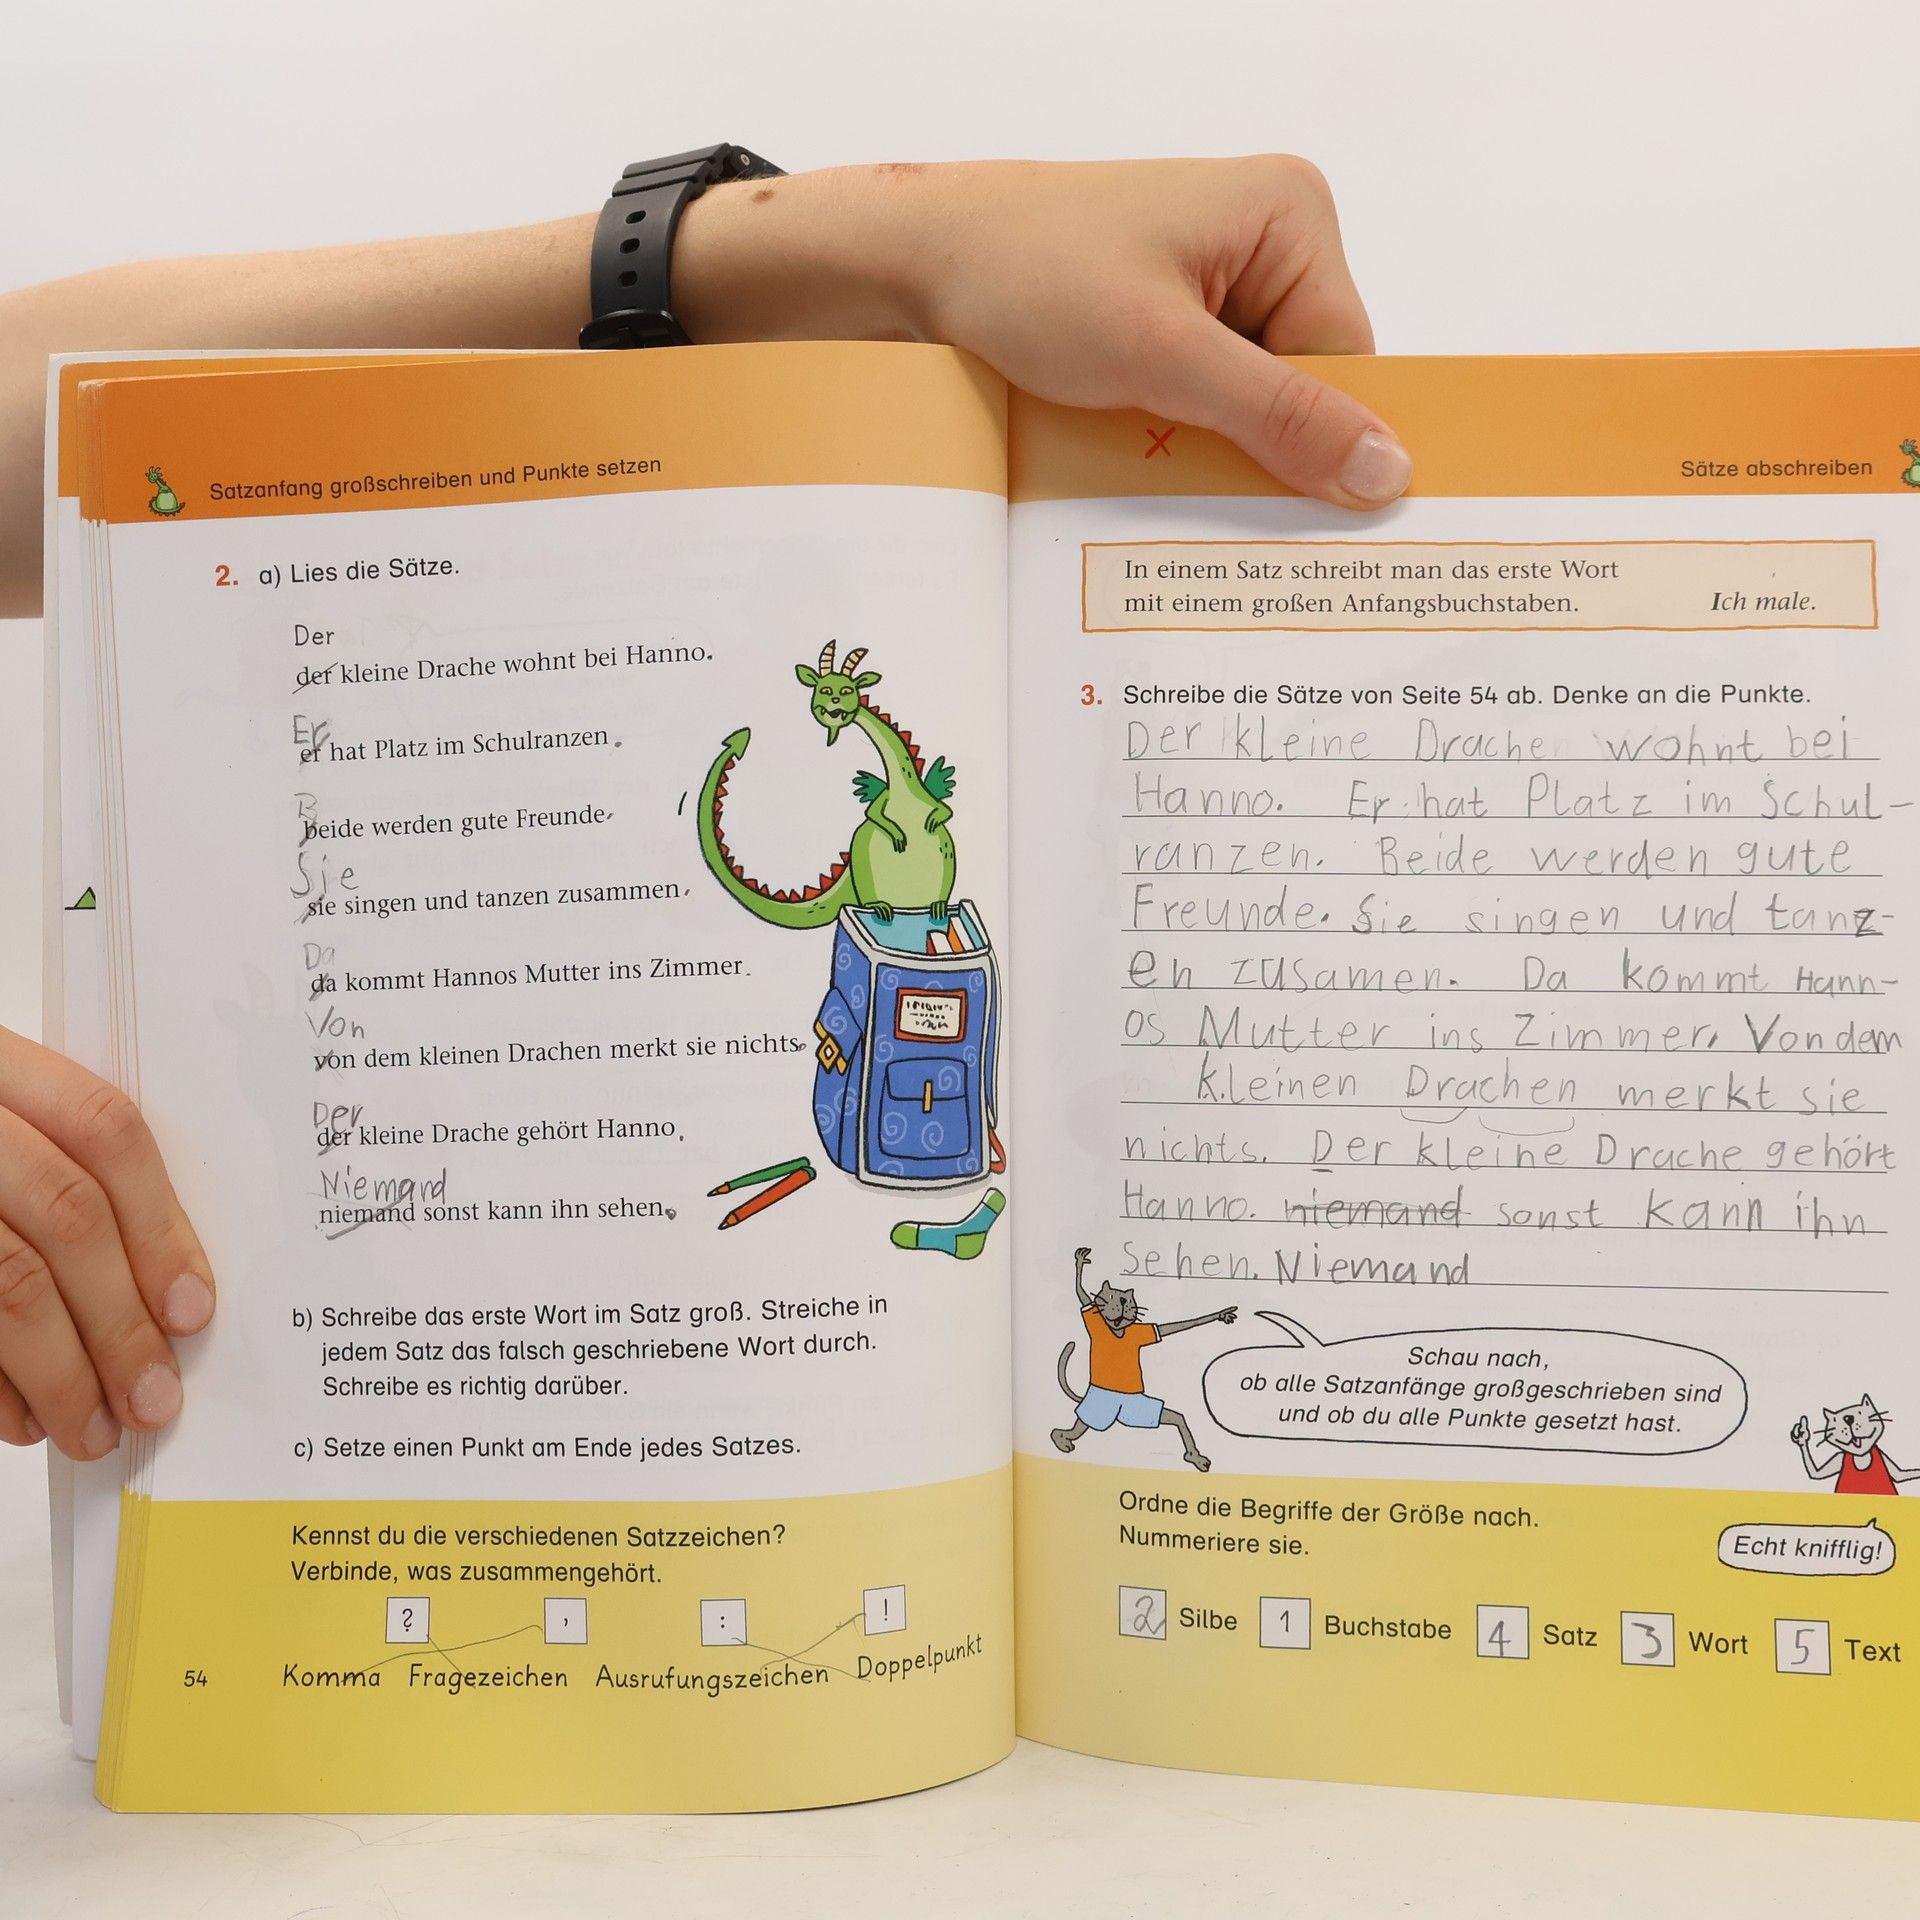 Satzanfang großschreiben und Punkte setzen
2. a) Lies die Sätze.
Der
der kleine Drache wohnt bei Hanno.
Er
er hat Platz im Schulranzen.
B
beide werden gute Freunde.
Sie
sie singen und tanzen zusammen.
Da
da kommt Hannos Mutter ins Zimmer.
Von
von dem kleinen Drachen merkt sie nichts.
Der
der kleine Drache gehört Hanno.
Niemand
niemand sonst kann ihn sehen.
b) Schreibe das erste Wort im Satz groß. Streiche in
jedem Satz das falsch geschriebene Wort durch.
Schreibe es richtig darüber.
c) Setze einen Punkt am Ende jedes Satzes.
Kennst du die verschiedenen Satzzeichen?
Verbinde, was zusammengehört.
? , : !
Komma Fragezeichen Ausrufungszeichen Doppelpunkt
54
Sätze abschreiben
In einem Satz schreibt man das erste Wort
mit einem großen Anfangsbuchstaben. Ich male.
3. Schreibe die Sätze von Seite 54 ab. Denke an die Punkte.
Der kleine Drache wohnt bei
Hanno. Er hat Platz im Schul-
ranzen. Beide werden gute
Freunde. Sie singen und tanz-
en zusamen. Da kommt Hann-
os Mutter ins Zimmer. Von dem
kleinen Drachen merkt sie
nichts. Der kleine Drache gehört
Hanno. niemand sonst kann ihn
sehen. Niemand
Schau nach,
ob alle Satzanfänge großgeschrieben sind
und ob du alle Punkte gesetzt hast.
Ordne die Begriffe der Größe nach.
Nummeriere sie.
Echt knifflig!
2 Silbe 1 Buchstabe 4 Satz 3 Wort 5 Text